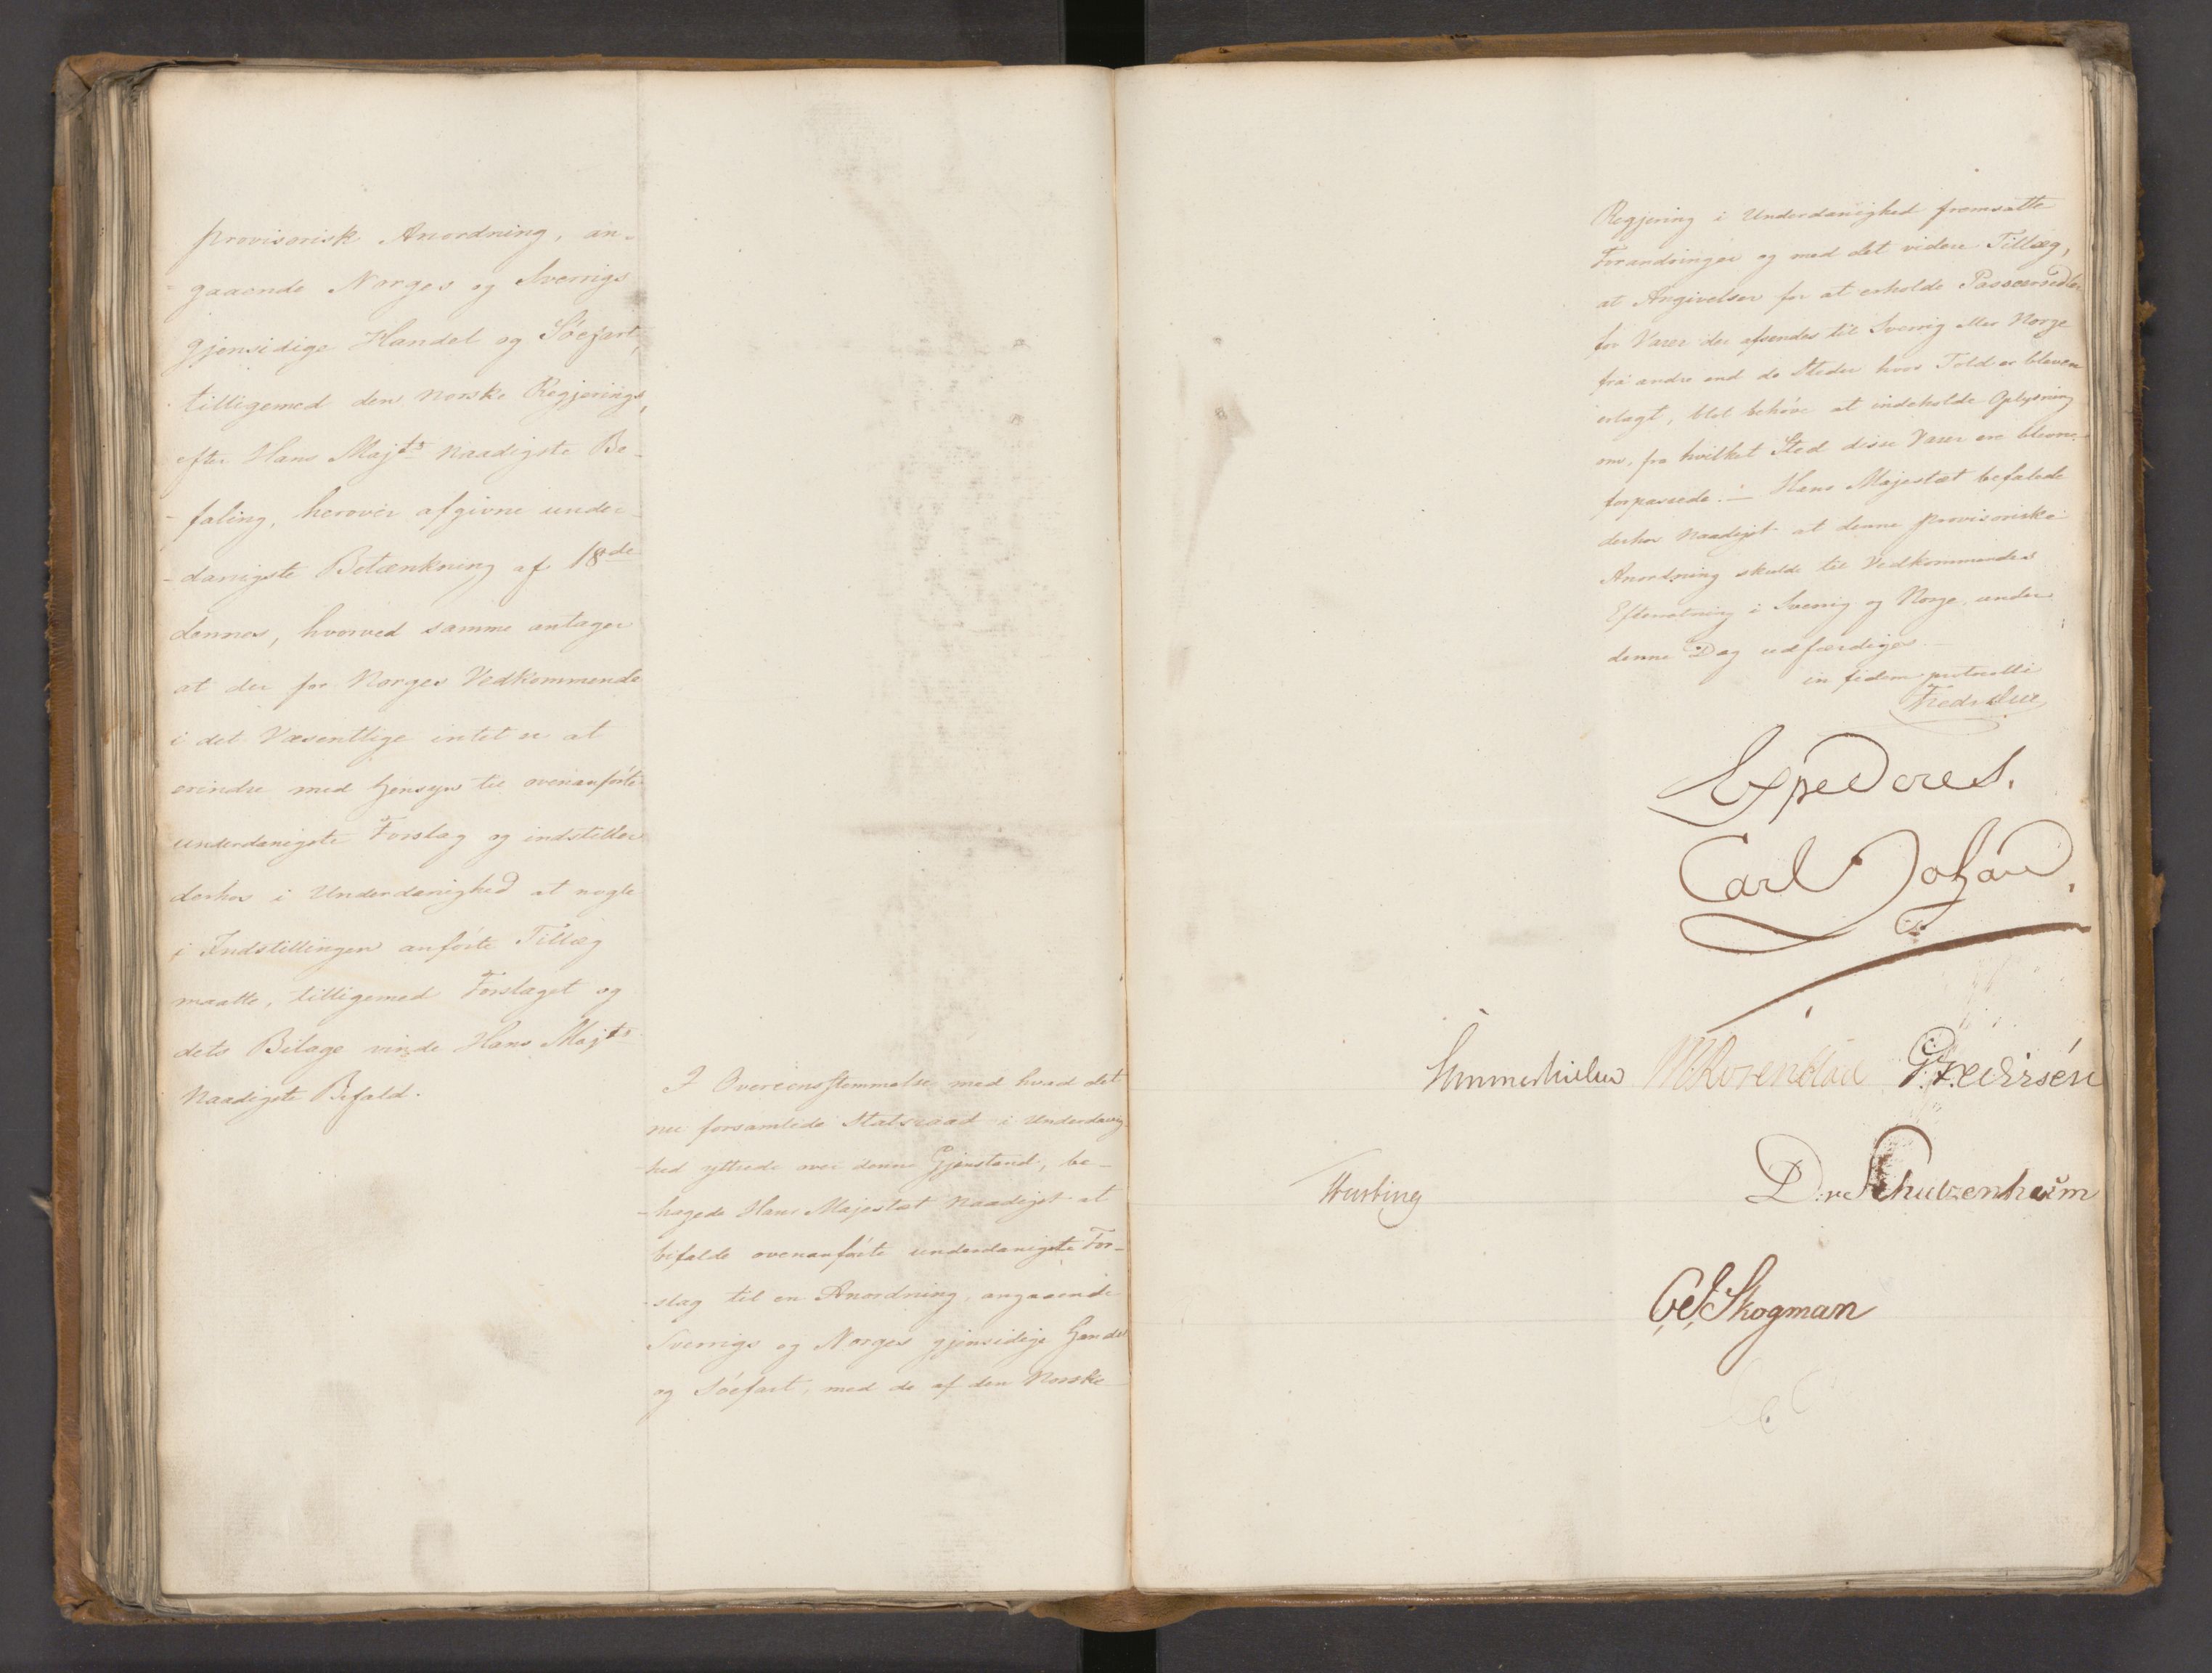 provisorisk Anordning, an-
gaaende Norges og Sverrigs
gjensidige Handel og Söefart,
tilligemed den norske Regjerings,
efter Hans Majts Naadigste Be-
faling, herover afgivne under-
danigste Betænkning af 18de
dennes, hvorved samme antager
at der for Norges Vedkommende
i det Væsentlige intet er at
erindre med Hensyn til ovenanförte
underdanigste Forslag og indstiller
derhos i Underdanighed at nogle
i Indstillingen anförte Tillæg
maatte, tilligemed Forslaget og
dets Bilage vinde Hans Majts
Naadigste Bifald.
I Overeensstemmelse med hvad det
nu forsamlede Statsraad i Underdanig-
hed yttrede over denne Gjenstand, be-
hagede Hans Majestæt Naadigst at
bifalde ovenanförte underdanigste For-
slag til en Anordning, angaaende
Sverrigs og Norges gjensidige Handel
og Söefart, med de af den Norske
Regjering i Underdanighed fremsatte
Forandringer og med det videre Tillæg,
at Angivelser for at erholde Passeersedler
for Varer der afsendes til Sverrig eller Norge
fra andre end de Steder hvor Told er bleven
erlagt, blot behöve at indeholde Oplysning
om, fra hvilket Sted disse Varer ere blevne
forpassede. – Hans Majestæt befalede
derhos Naadigst at denne provisoriske
Anordning skulde til Vedkommendes
Efterretning i Sverrig og Norge, under
denne Dag udfærdiges.
in fidem protocolli
Expederes.
Carl Johan
Sommerhielm M Rosenblad G Fr Wirsén
D. v. Schulzenheim
CD Skogman